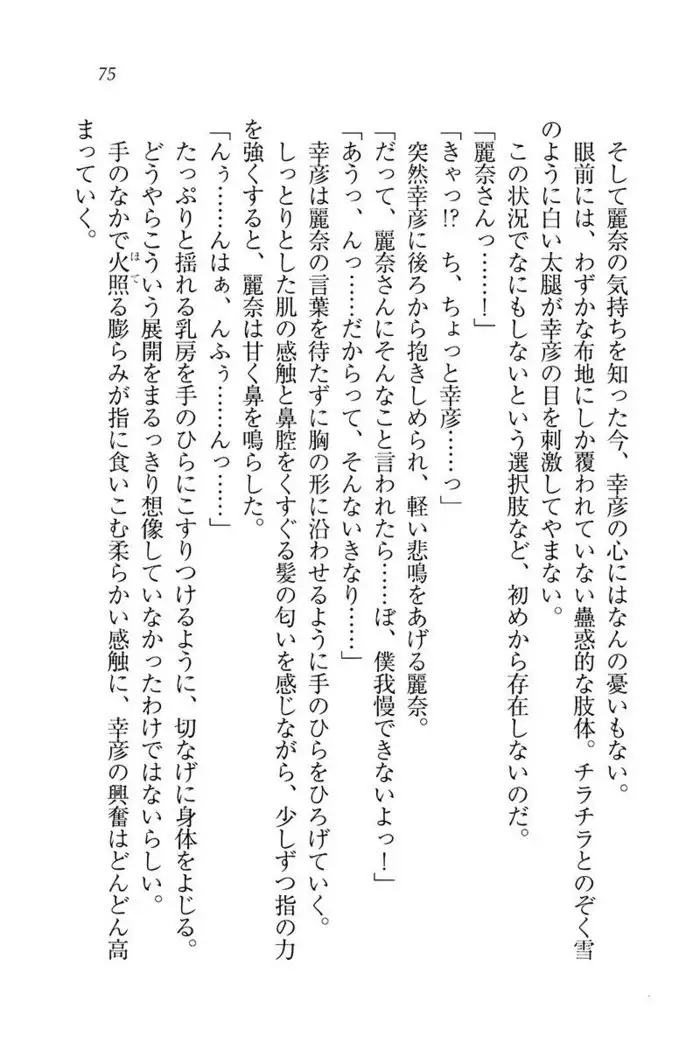 75
そして麗奈の気持ちを知った今、幸彦の心にはなんの憂いもない。
眼前には、わずかな布地にしか覆われていない蠱惑的な肢体。チラチラとのぞく雪
のように白い太腿が幸彦の目を刺激してやまない。
この状況でなにもしないという選択肢など、初めから存在しないのだ。
「麗奈さんっ……！」
「きゃっ!?　ち、ちょっと幸彦……っ」
突然幸彦に後ろから抱きしめられ、軽い悲鳴をあげる麗奈。
「だって、麗奈さんにそんなこと言われたら……ぼ、僕我慢できないよっ！」
「あうっ、んっ……だからって、そんないきなり……」
幸彦は麗奈の言葉を待たずに胸の形に沿わせるように手のひらをひろげていく。
しっとりとした肌の感触と鼻腔をくすぐる髪の匂いを感じながら、少しずつ指の力
を強くすると、麗奈は甘く鼻を鳴らした。
「んぅ……んはぁ、んふぅ……んっ……」
たっぷりと揺れる乳房を手のひらにこすりつけるように、切なげに身体をよじる。
どうやらこういう展開をまるっきり想像していなかったわけではないらしい。
手のなかで火照（ほて）る膨らみが指に食いこむ柔らかい感触に、幸彦の興奮はどんどん高
まっていく。